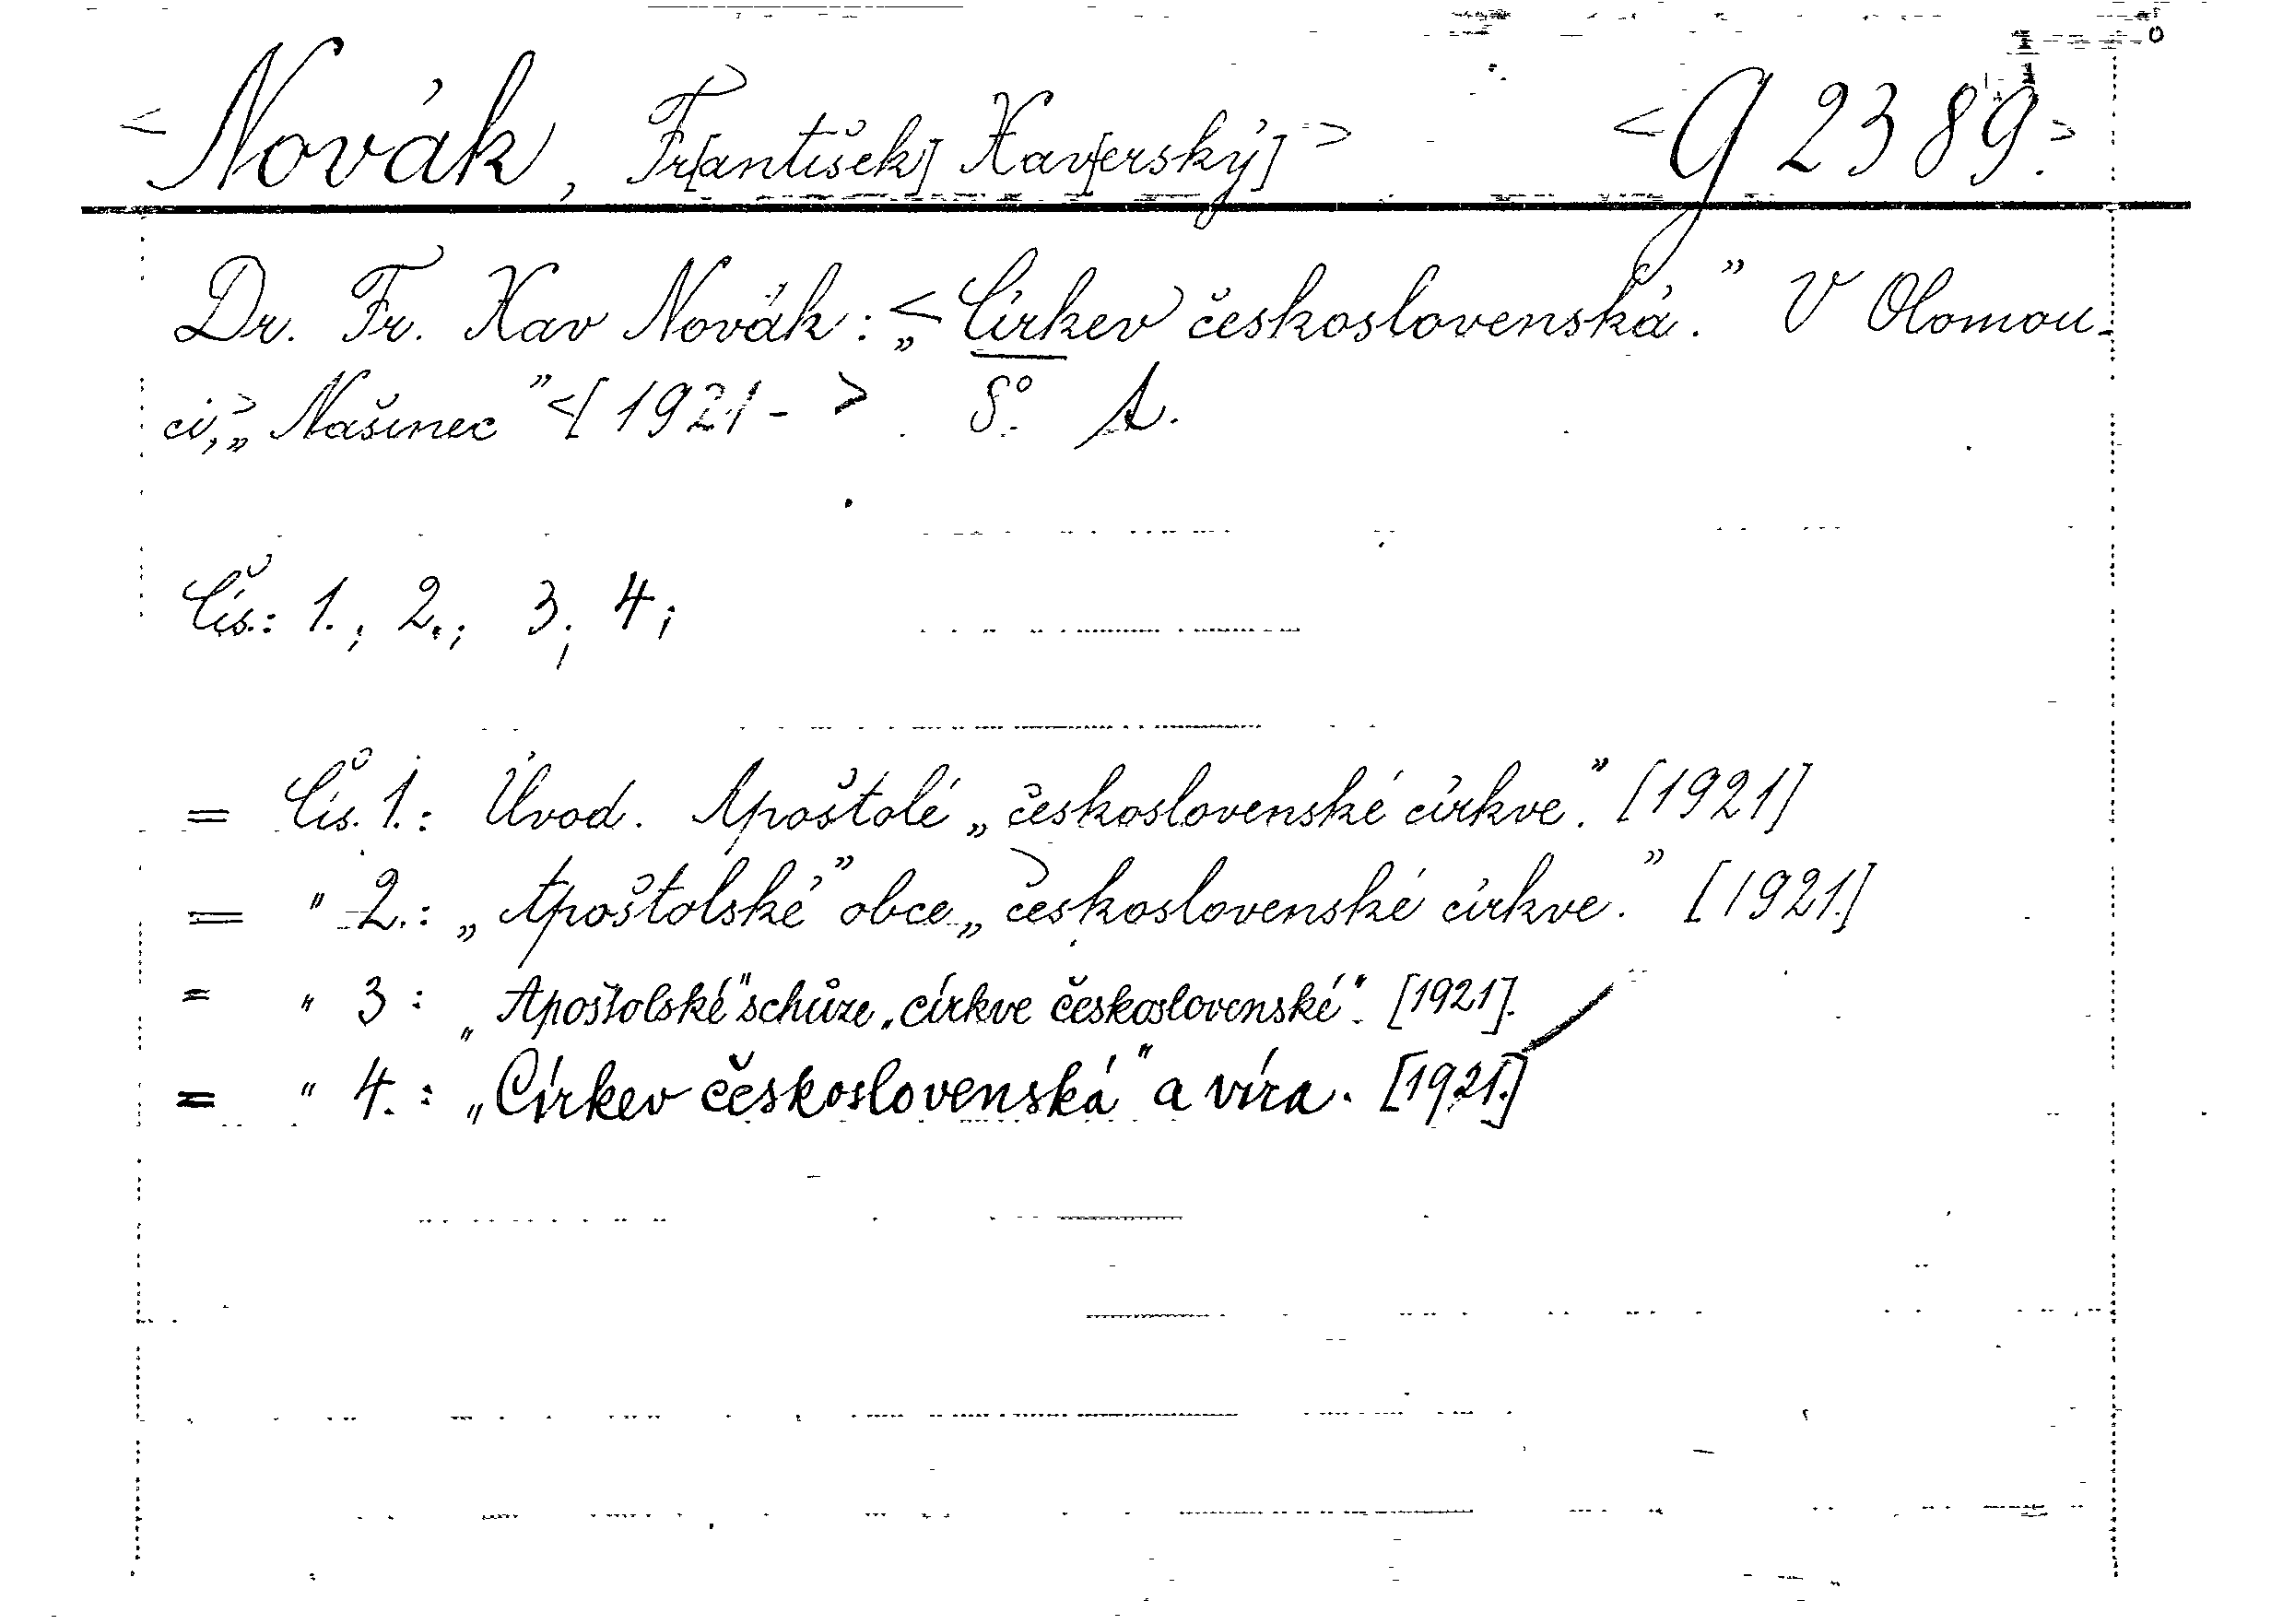 <Novák, Fr[antišek] Xav[erský]> <G 2389.>
Dr. Fr. Xav Novák: <„Církev československá.” V Olomou-
ci,> „Našinec” <[1921- > 8º. A.
Čís.: 1.; 2.; 3.; 4;
= Čís. 1.: Úvod. Apoštolé „československé církve.” [1921]
= " 2.: „Apoštolské” obce „československé církve.” [1921.]
= " 3: „Apoštolské" schůze „církve československé". [1921].
= " 4.: „Církev československá" a víra. [1921.]